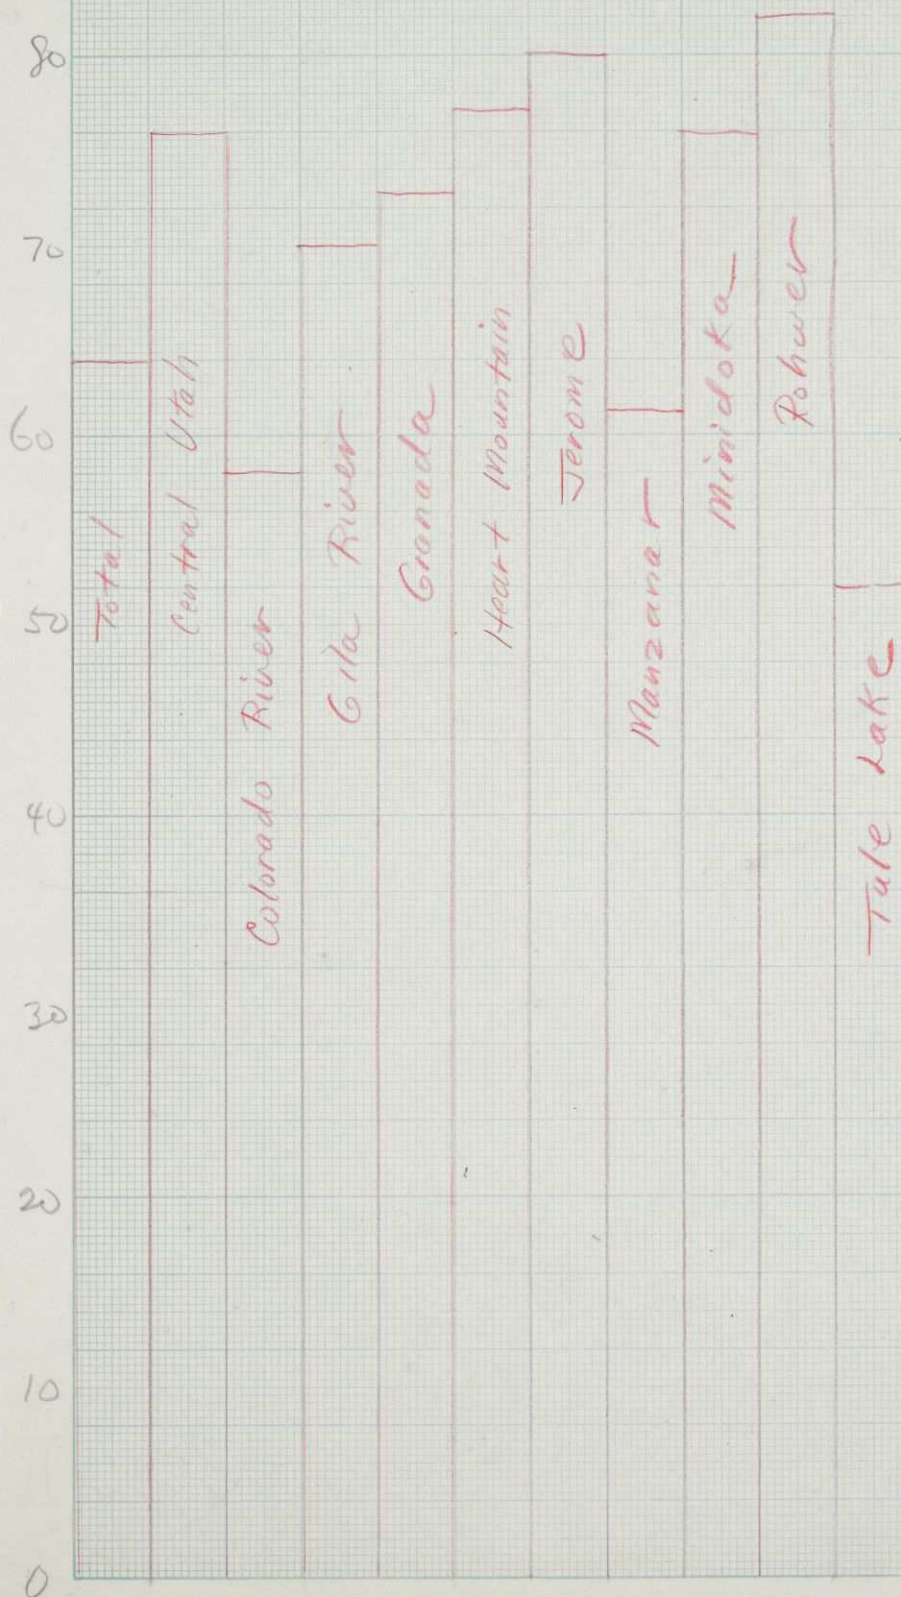 80
70
60
50
40
30
20
10
0
Total
Central Utah
Colorado River
Gila River
Granada
Heart Mountain
Jerome
Manzanar
Minidoka
Rohwer
Tule Lake